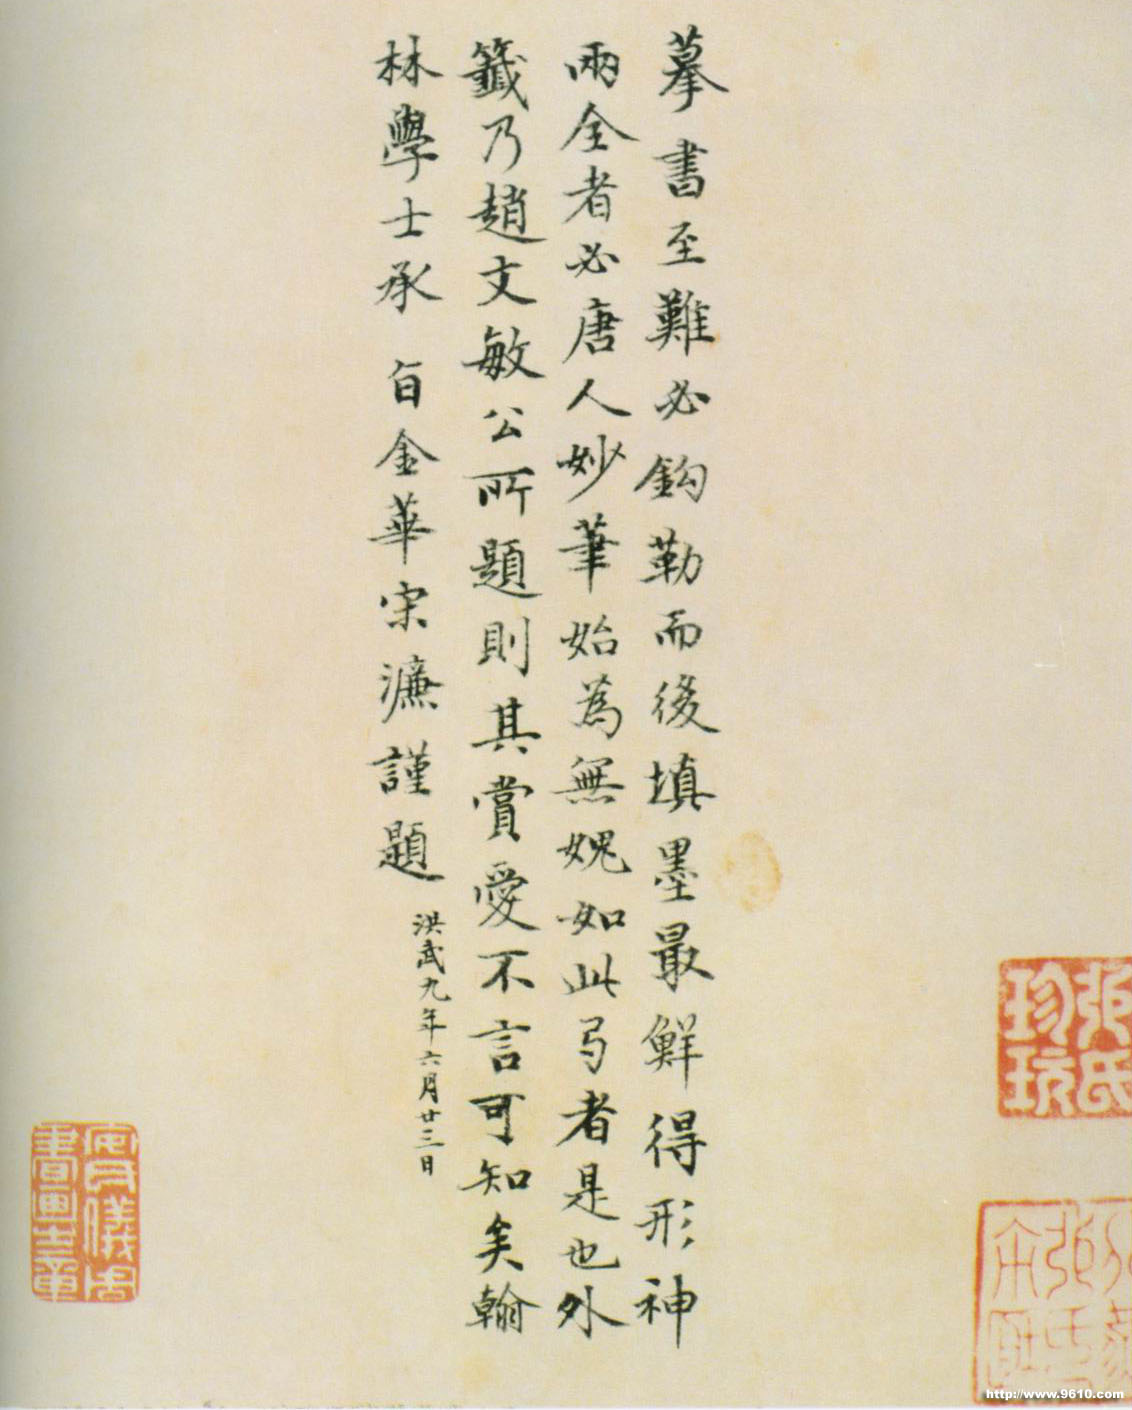 摹書至難必鈎勒而後填墨最鮮得形神
兩全者必唐人妙筆始為無媿如此弓者是也外
籤乃趙文敏公所題則其賞愛不言可知矣翰
林學士承旨金華宋濂謹題
洪武九年六月廿三日
張氏
珍玩
安儀周
書畫之章
http://www.9610.com